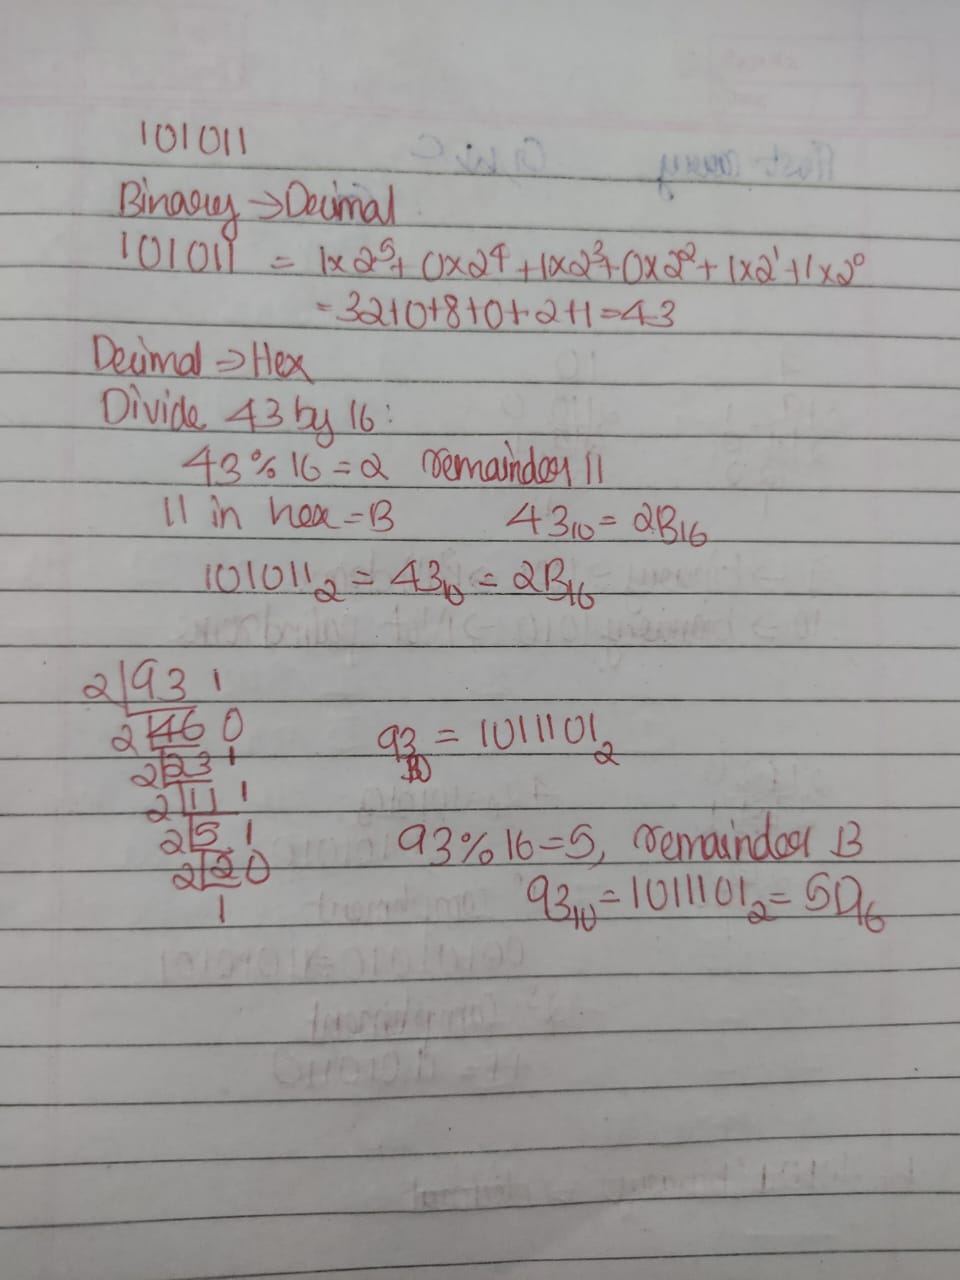 101011
Binary → Decimal
101011 = 1x2⁵+ 0x2⁴ +1x2³+0x2²+ 1x2¹+1x2⁰
=32+0+8+0+2+1=43
Decimal → Hex
Divide 43 by 16:
43%16=2 remainder 11
11 in hex=B 43₁₀= 2B₁₆
101011₂ = 43₁₀ = 2B₁₆
2|93 1
2|46 0
93₁₀ = 1011101₂
2|23 1
2|11 1
2|5 1
93%16=5, remainder B
2|2 0
1
93₁₀=1011101₂= 5D₁₆